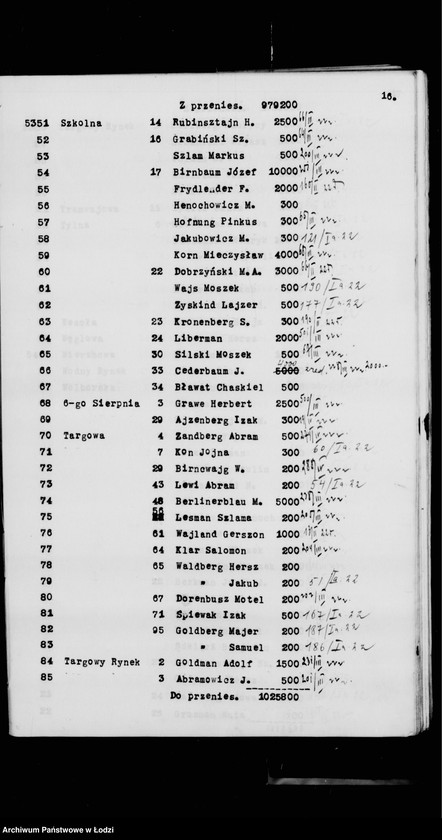 16.
Z przenies. 979200
5351 Szkolna 14 Rubinsztajn H. 2500
52 16 Grabiński Sz. 500
53 Szlam Markus 500
54 17 Birnbaum Józef 10000
55 Frydlender F. 2000
56 Henochowicz M. 300
57 Hofnung Pinkus 300
58 Jakubowicz M. 300 121/Ia.22
59 Korn Mieczysław 4000
60 22 Dobrzyński M.A. 3000
61 Wajs Moszek 500 130/Ia.22
62 Zyskind Lajzer 500 177/Ia.22
63 23 Kronenberg S. 300
64 24 Liberman 2000
65 30 Silski Moszek 500
66 33 Cederbaum J. 5000 2000.-
67 34 Bławat Chaskiel 500
68 6-go Sierpnia 3 Grawe Herbert 2500
69 29 Ajzenberg Izak 300
70 Targowa 4 Zandberg Abram 500
71 7 Kon Jojna 300 60/Ia.22
72 29 Birncwajg W. 200
73 43 Lewi Abram 200 54/Ia.22
74 48 Berlinerblau M. 5000
75 56 Lesman Szlama 200
76 61 Wajland Gerszon 1000
77 64 Klar Salomon 200
78 65 Waldberg Hersz 200
79 " Jakub 200 51/Ia.22
80 67 Dorenbusz Motel 200
81 71 Śpiewak Izak 500 167/Ia.22
82 95 Goldberg Majer 200 187/Ia.22
83 " Samuel 200 186/Ia.22
84 Targowy Rynek 2 Goldman Adolf 1500
85 3 Abramowicz J. 500
Do przenies. 1025800
Archiwum Państwowe w Łodzi